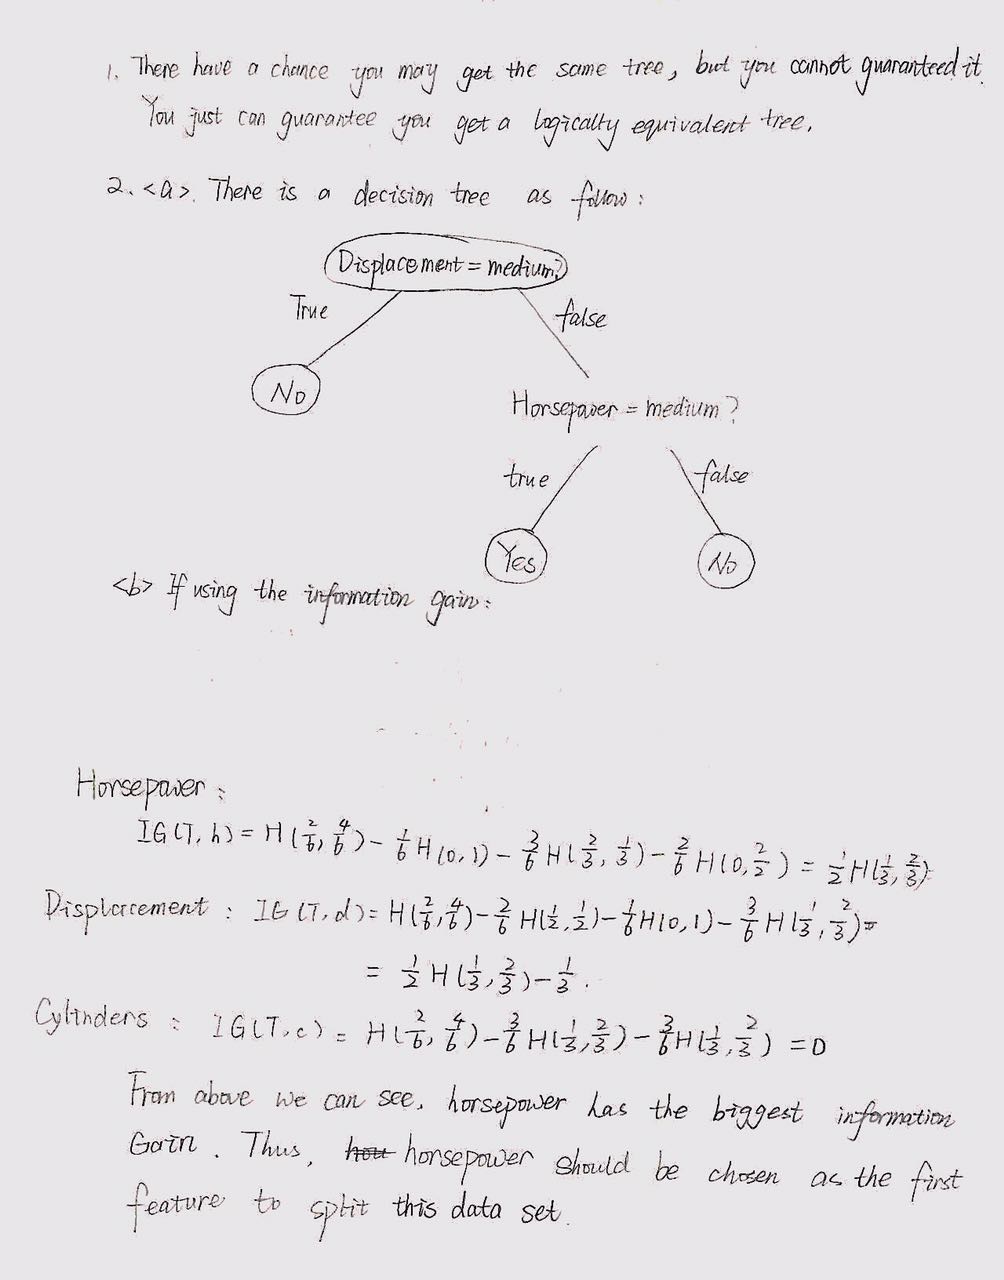 1. There have a chance you may get the same tree, but you cannot guaranteed it.
You just can guarantee you get a logically equivalent tree.
2. <a>. There is a decision tree as follow:
Displacement = medium?
True false
No
Horsepower = medium?
true false
Yes No
<b> If using the information gain:
Horsepower:
IG(T, h) = H(2/6, 4/6) - 1/6 H(0, 1) - 3/6 H(2/3, 1/3) - 2/6 H(0, 2/2) = 1/2 H(1/3, 2/3).
Displacement: IG(T, d) = H(2/6, 4/6) - 2/6 H(1/2, 1/2) - 1/6 H(0, 1) - 3/6 H(1/3, 2/3) =
= 1/2 H(1/3, 2/3) - 1/3.
Cylinders: IG(T, c) = H(2/6, 4/6) - 3/6 H(1/3, 2/3) - 3/6 H(1/3, 2/3) = 0
From above we can see, horsepower has the biggest information
Gain. Thus, horsepower should be chosen as the first
feature to split this data set.